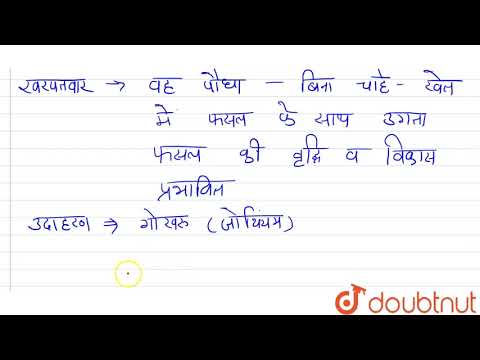 खरपतवार → वह पौधा — बिना चाहे - खेत
में फसल के साथ उगता
फसल की वृद्धि व विकास
प्रभावित
उदाहरण ⇒ गोखरू (जोंथियम)
doubtnut